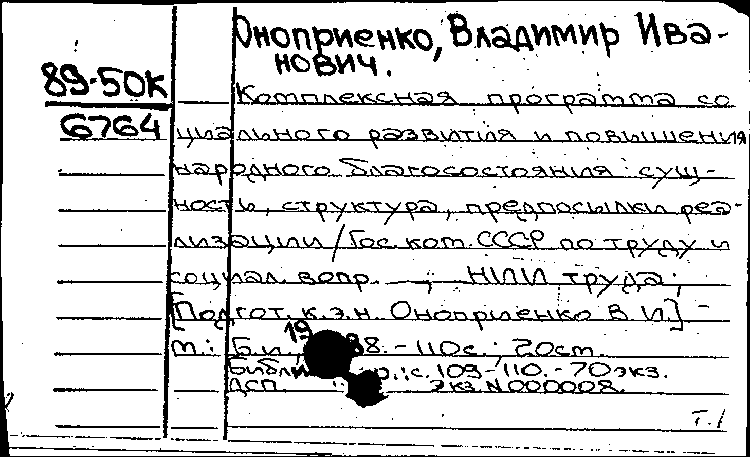 Оноприенко, Владимир Ива-
нович.
89-50К
6764
Комплексная программа со
циального развития и повышения
народного благосостояния: сущ-
ность, структура, предпосылки реа-
лизации / Гос. ком. СССР по труду и
социал. вопр. -; НИИ труда;
[Подгот. к.э.н. Оноприенко В.И.] -
М.: Б.и., 1988. - 110с.; 20см.
с. 109-110. - 70экз.
ДСП. Экз. N 000008.
Т. 1